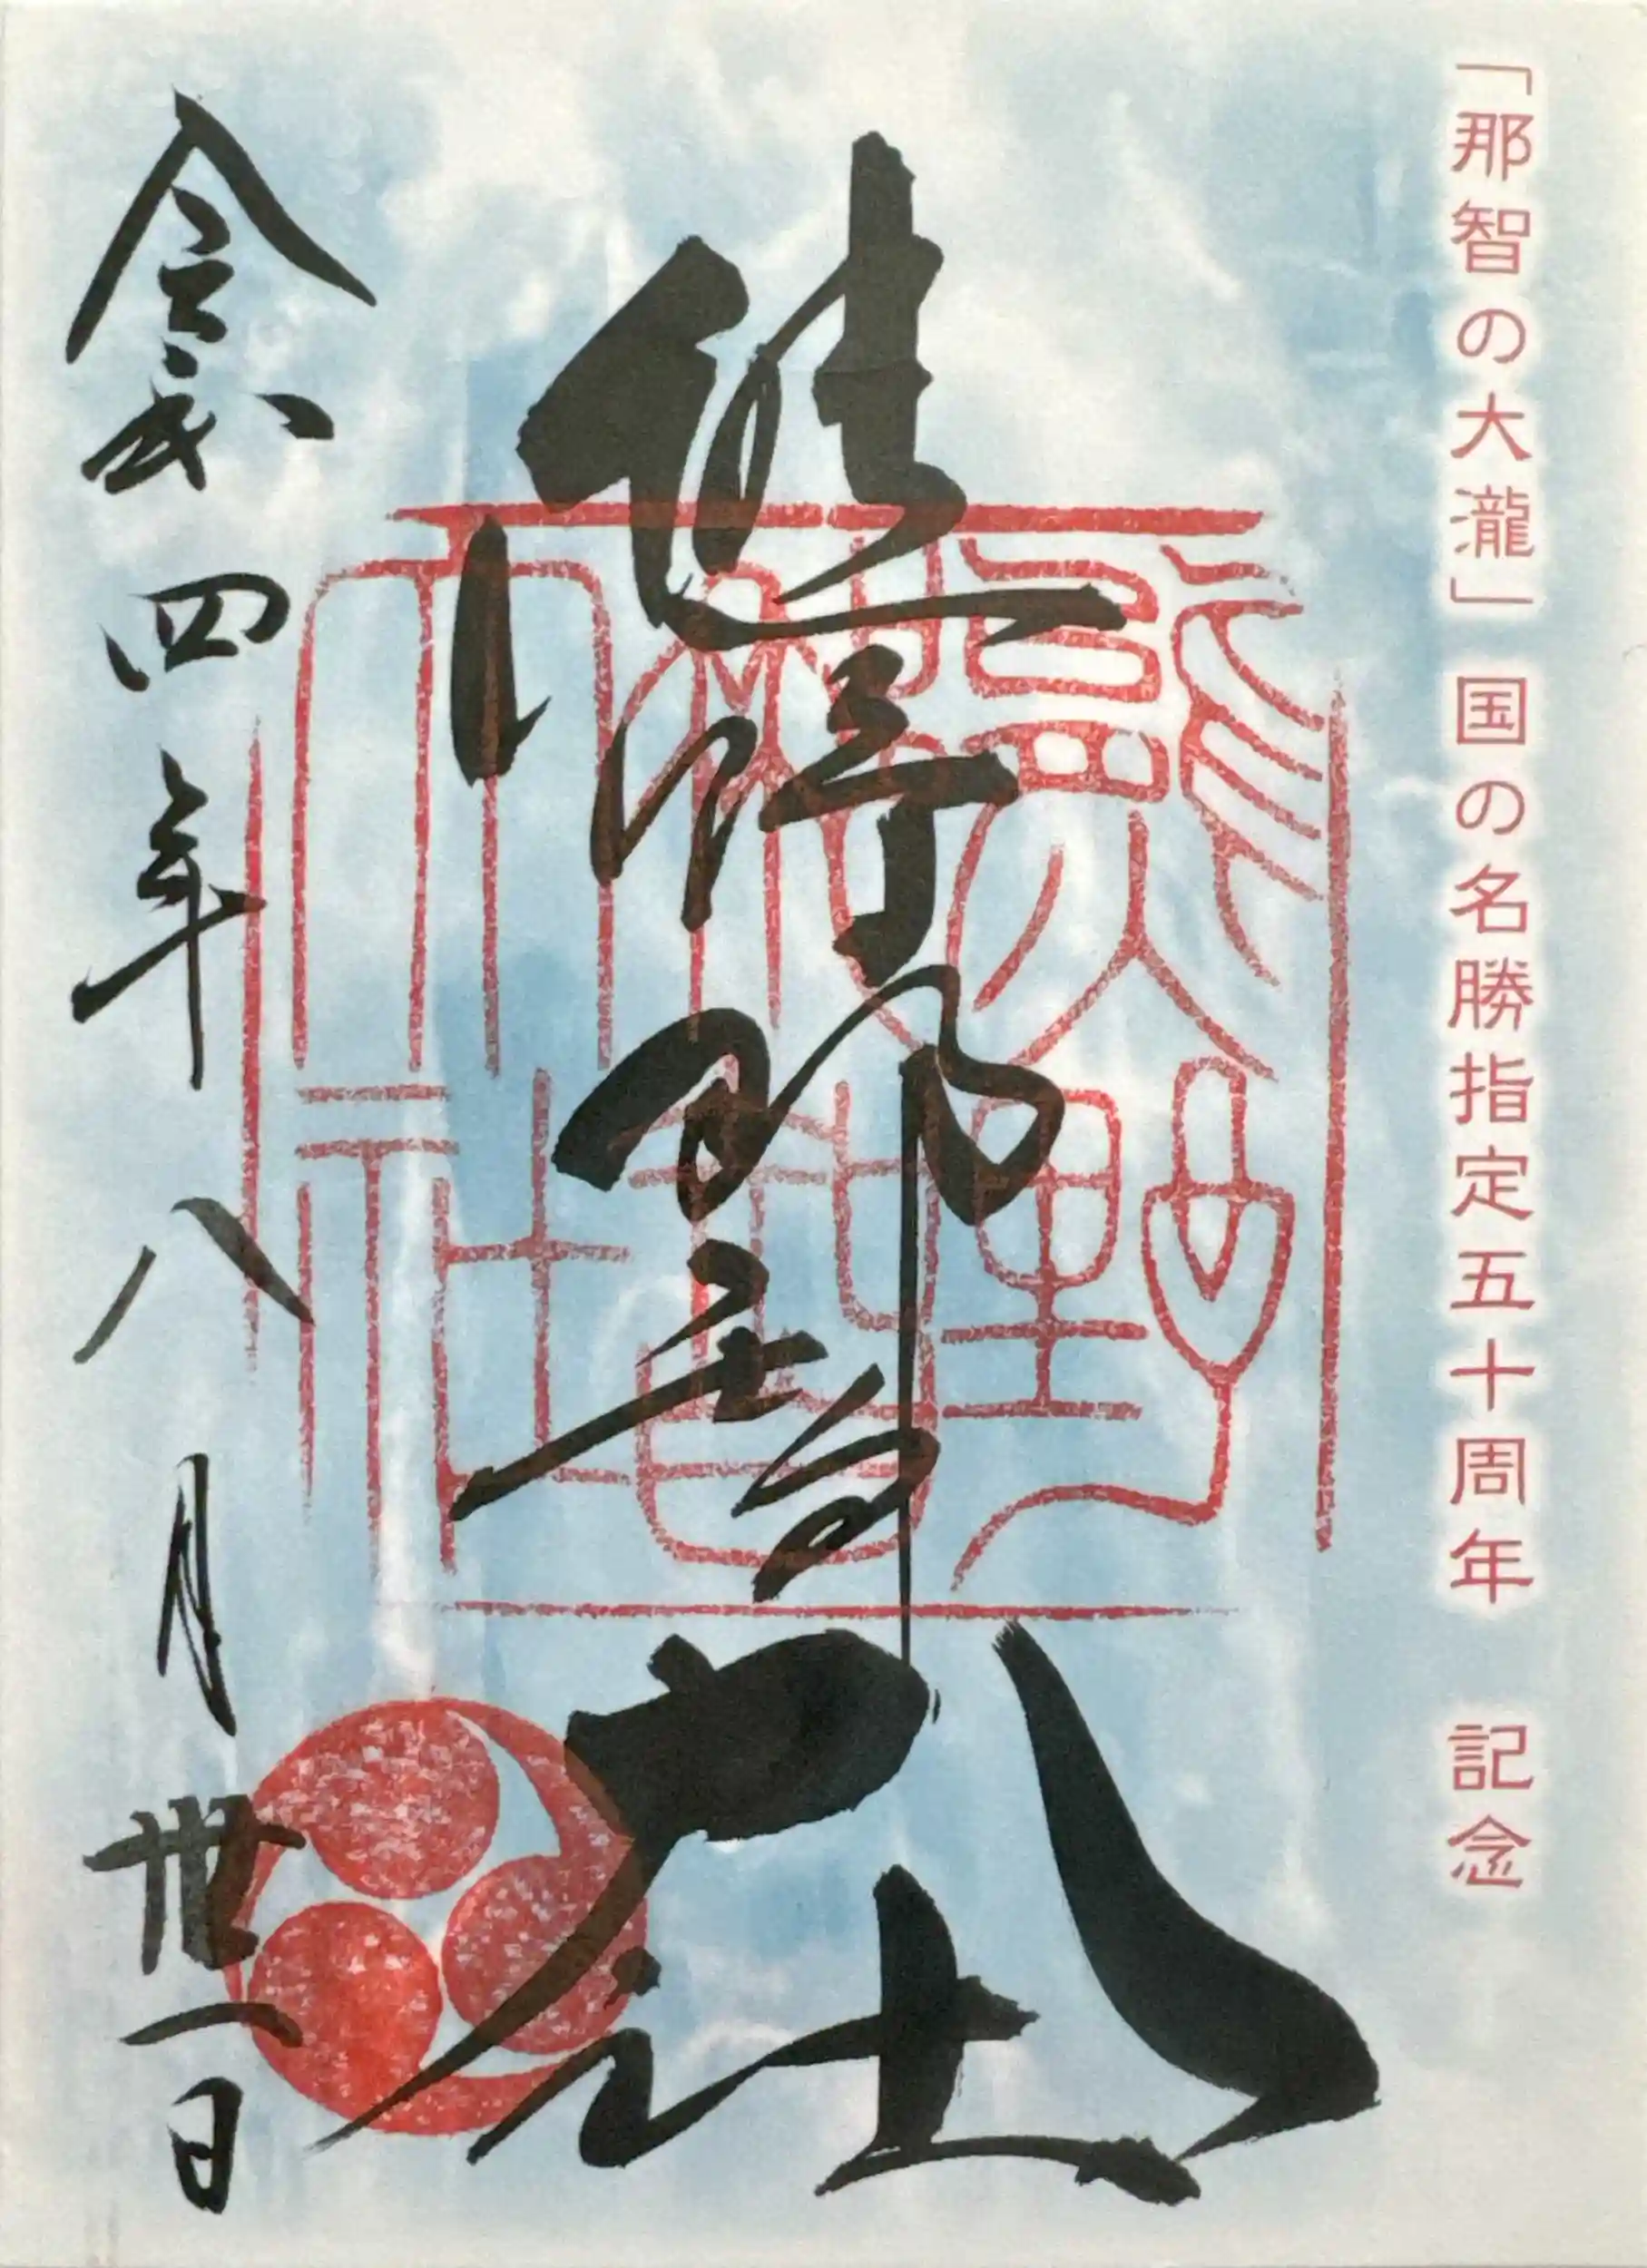 「那智の大瀧」国の名勝指定五十周年 記念
熊野那智大社
熊野
那智
大社
令和四年八月卅一日